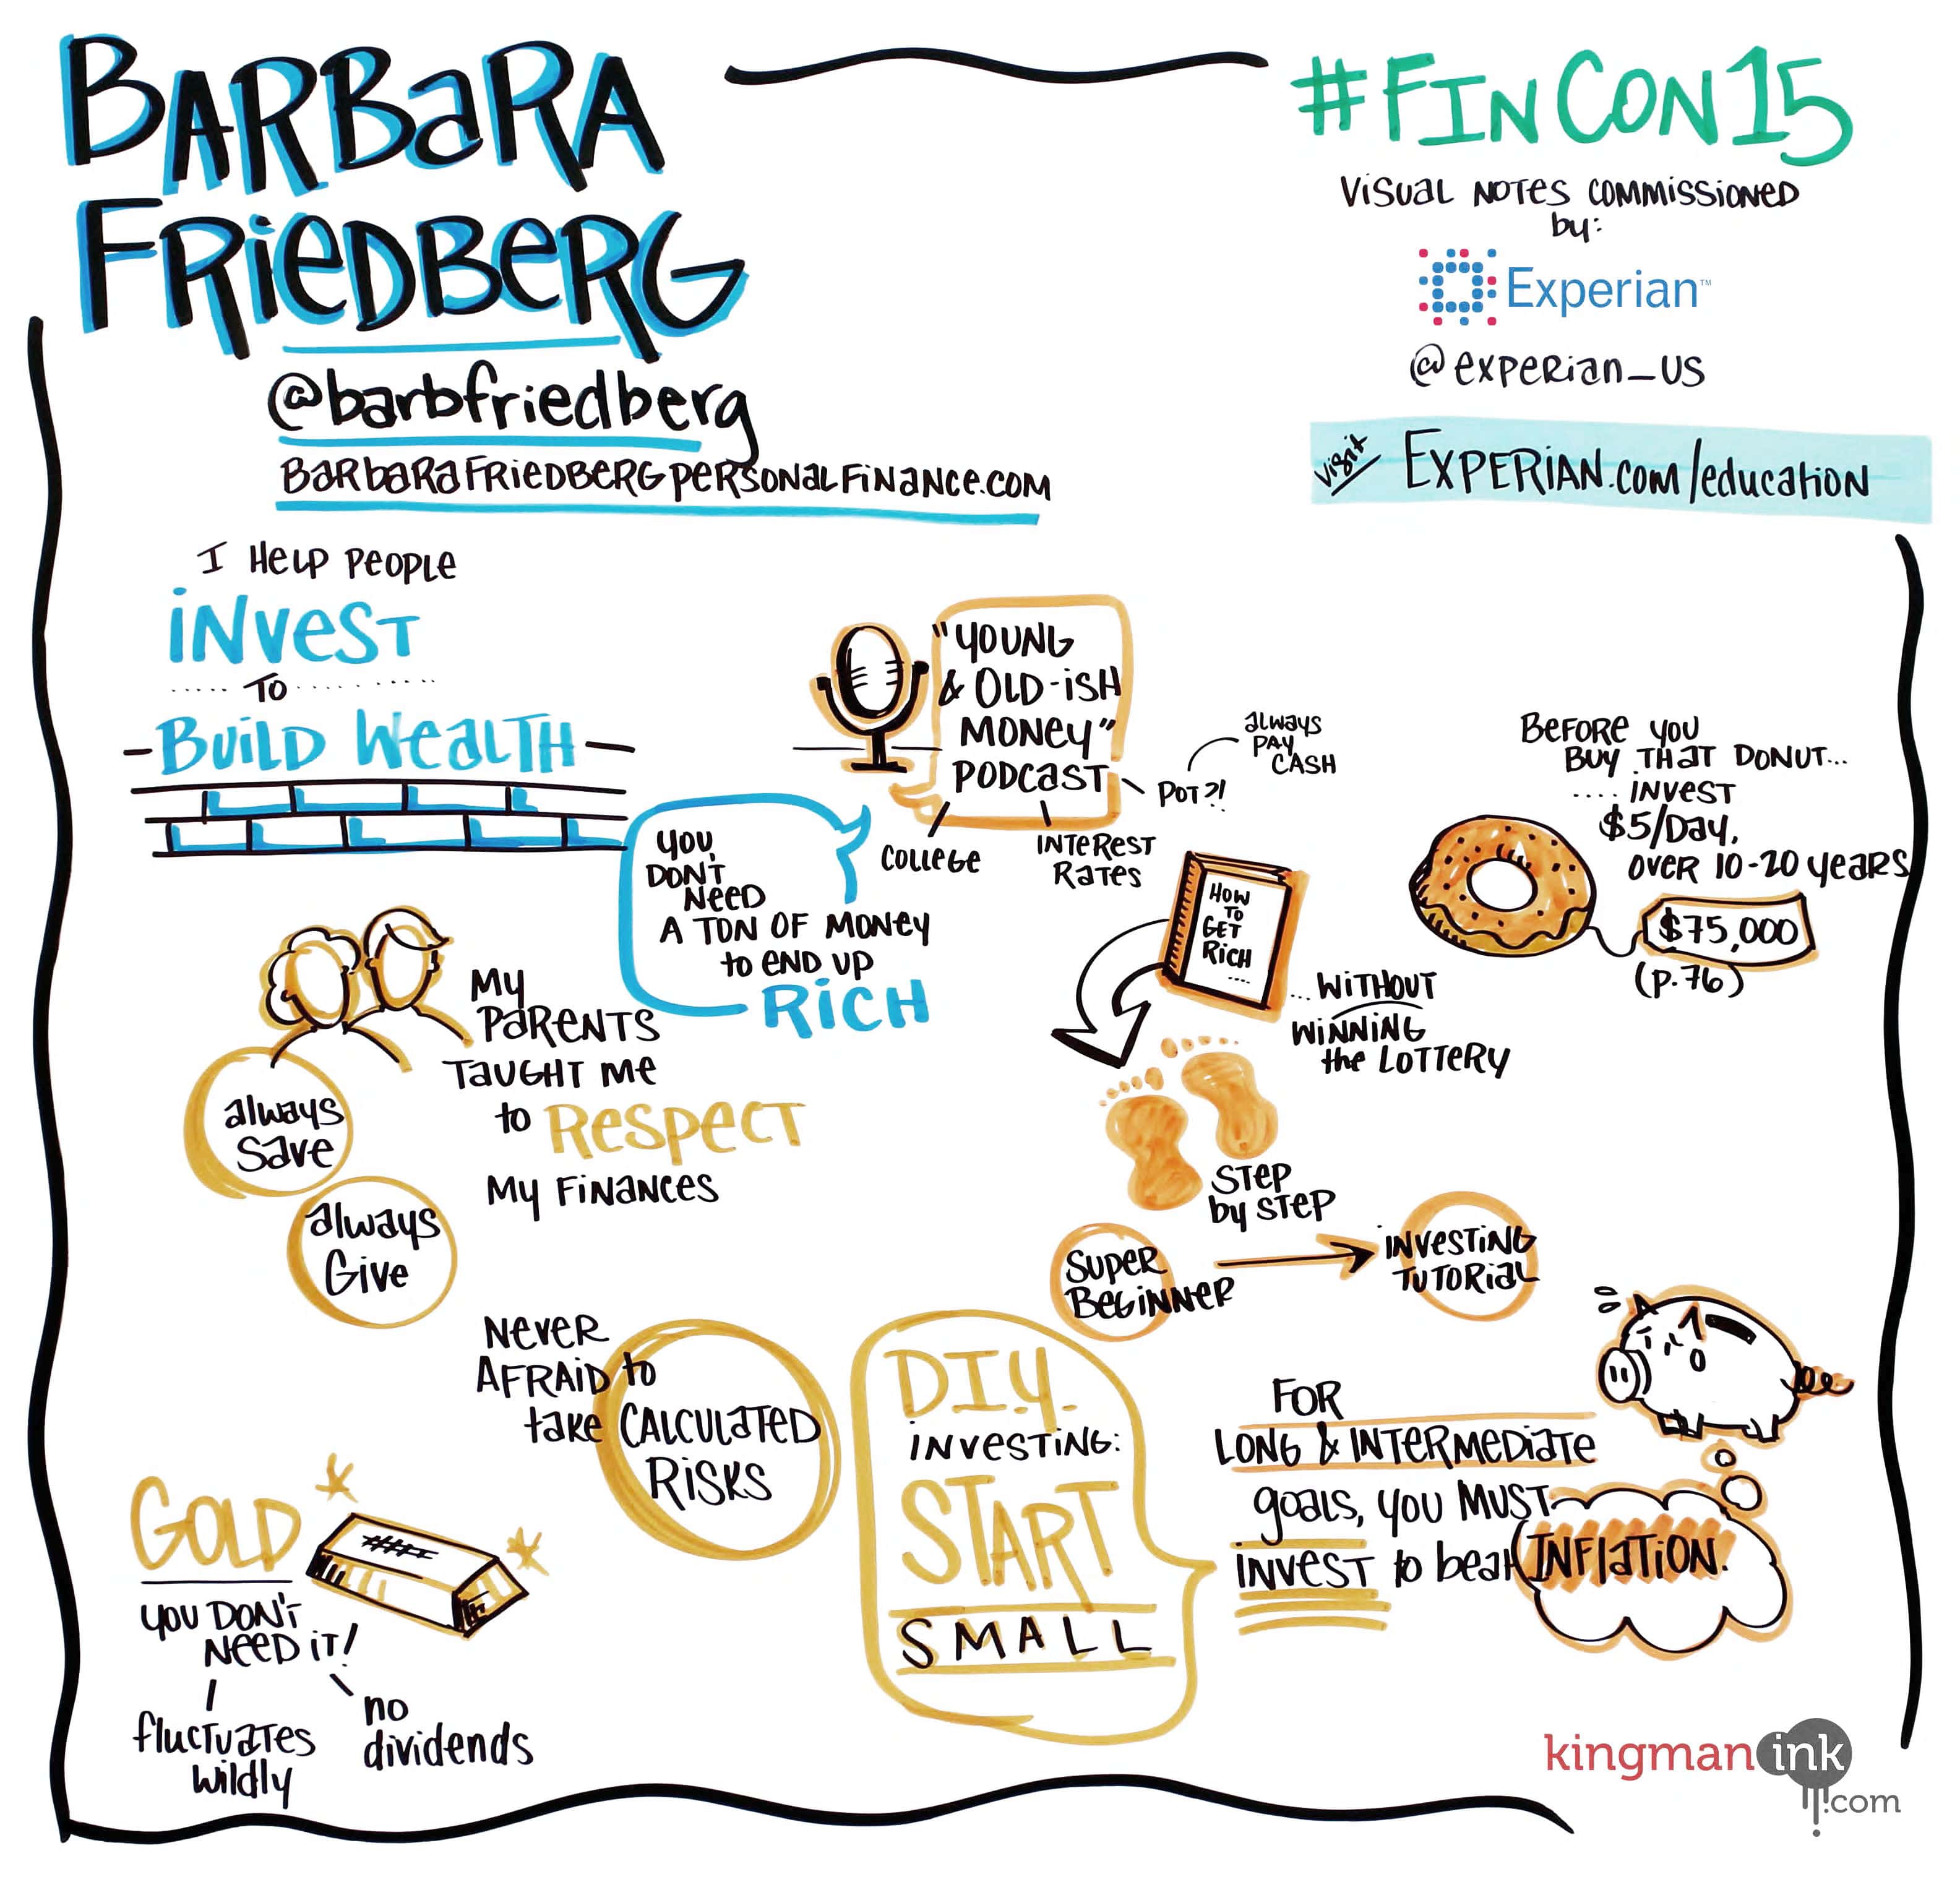 BARBARA
FRIEDBERG
@barbfriedberg
BARBARAFRIEDBERGPERSONALFINANCE.COM
#FINCON15
VISUAL NOTES COMMISSIONED
by:
Experian™
@experian_US
visit EXPERIAN.com/education
I HELP PEOPLE
INVEST
TO
BUILD WEALTH
"YOUNG
& OLD-ISH
MONEY"
PODCAST
COLLEGE
INTEREST
RATES
POT?!
always
PAY
CASH
YOU
DON'T
NEED
A TON OF MONEY
to END UP
RICH
BEFORE YOU
BUY THAT DONUT...
.... INVEST
$5/DAY,
OVER 10-20 years
$75,000
(p.76)
HOW
TO
GET
RICH
....
... WITHOUT
WINNING
the LOTTERY
STEP
by STEP
SUPER
BEGINNER
INVESTING
TUTORIAL
My
PARENTS
TAUGHT ME
to RESPECT
My FINANCES
always
Save
always
Give
NEVER
AFRAID to
take CALCULATED
RISKS
D.I.Y.
INVESTING:
START
SMALL
FOR
LONG & INTERMEDIATE
goals, you MUST
INVEST to beat INFLATION.
GOLD
you DON'T
NEED IT!
fluctuates
wildly
no
dividends
kingmanink
.com